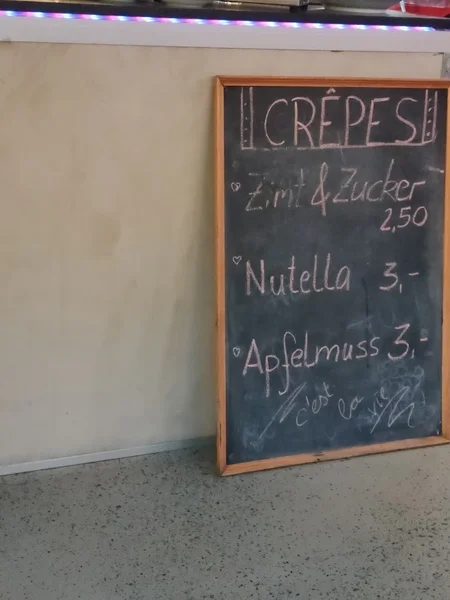 CRÊPES
Zimt & Zucker
2,50
Nutella 3,-
Apfelmuss 3,-
c'est la vie